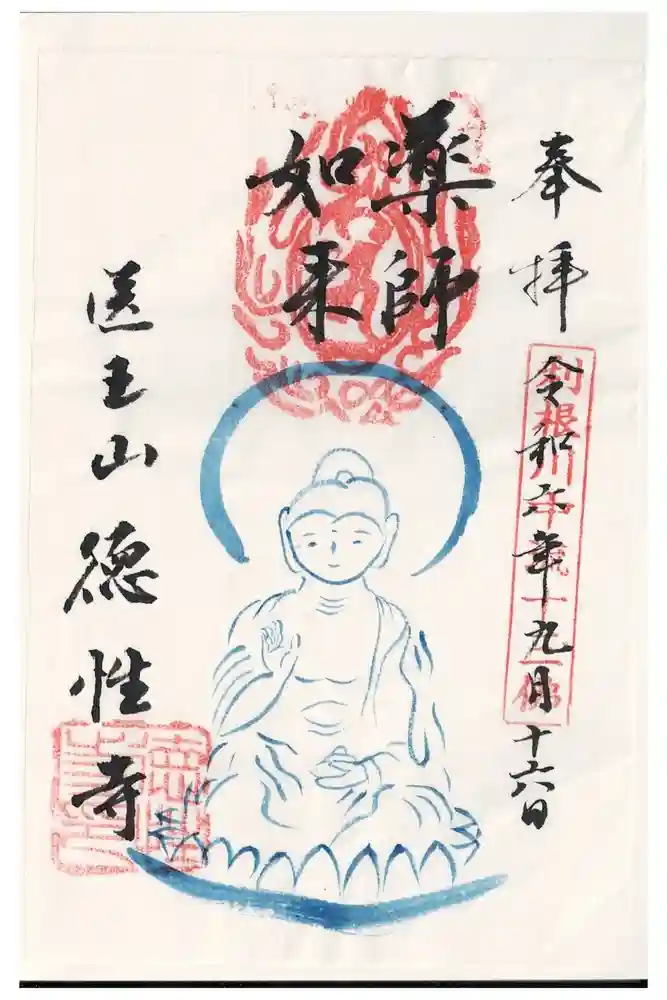 奉拝
令和六年九月十六日
利根川
薬師
如来
医王山徳性寺